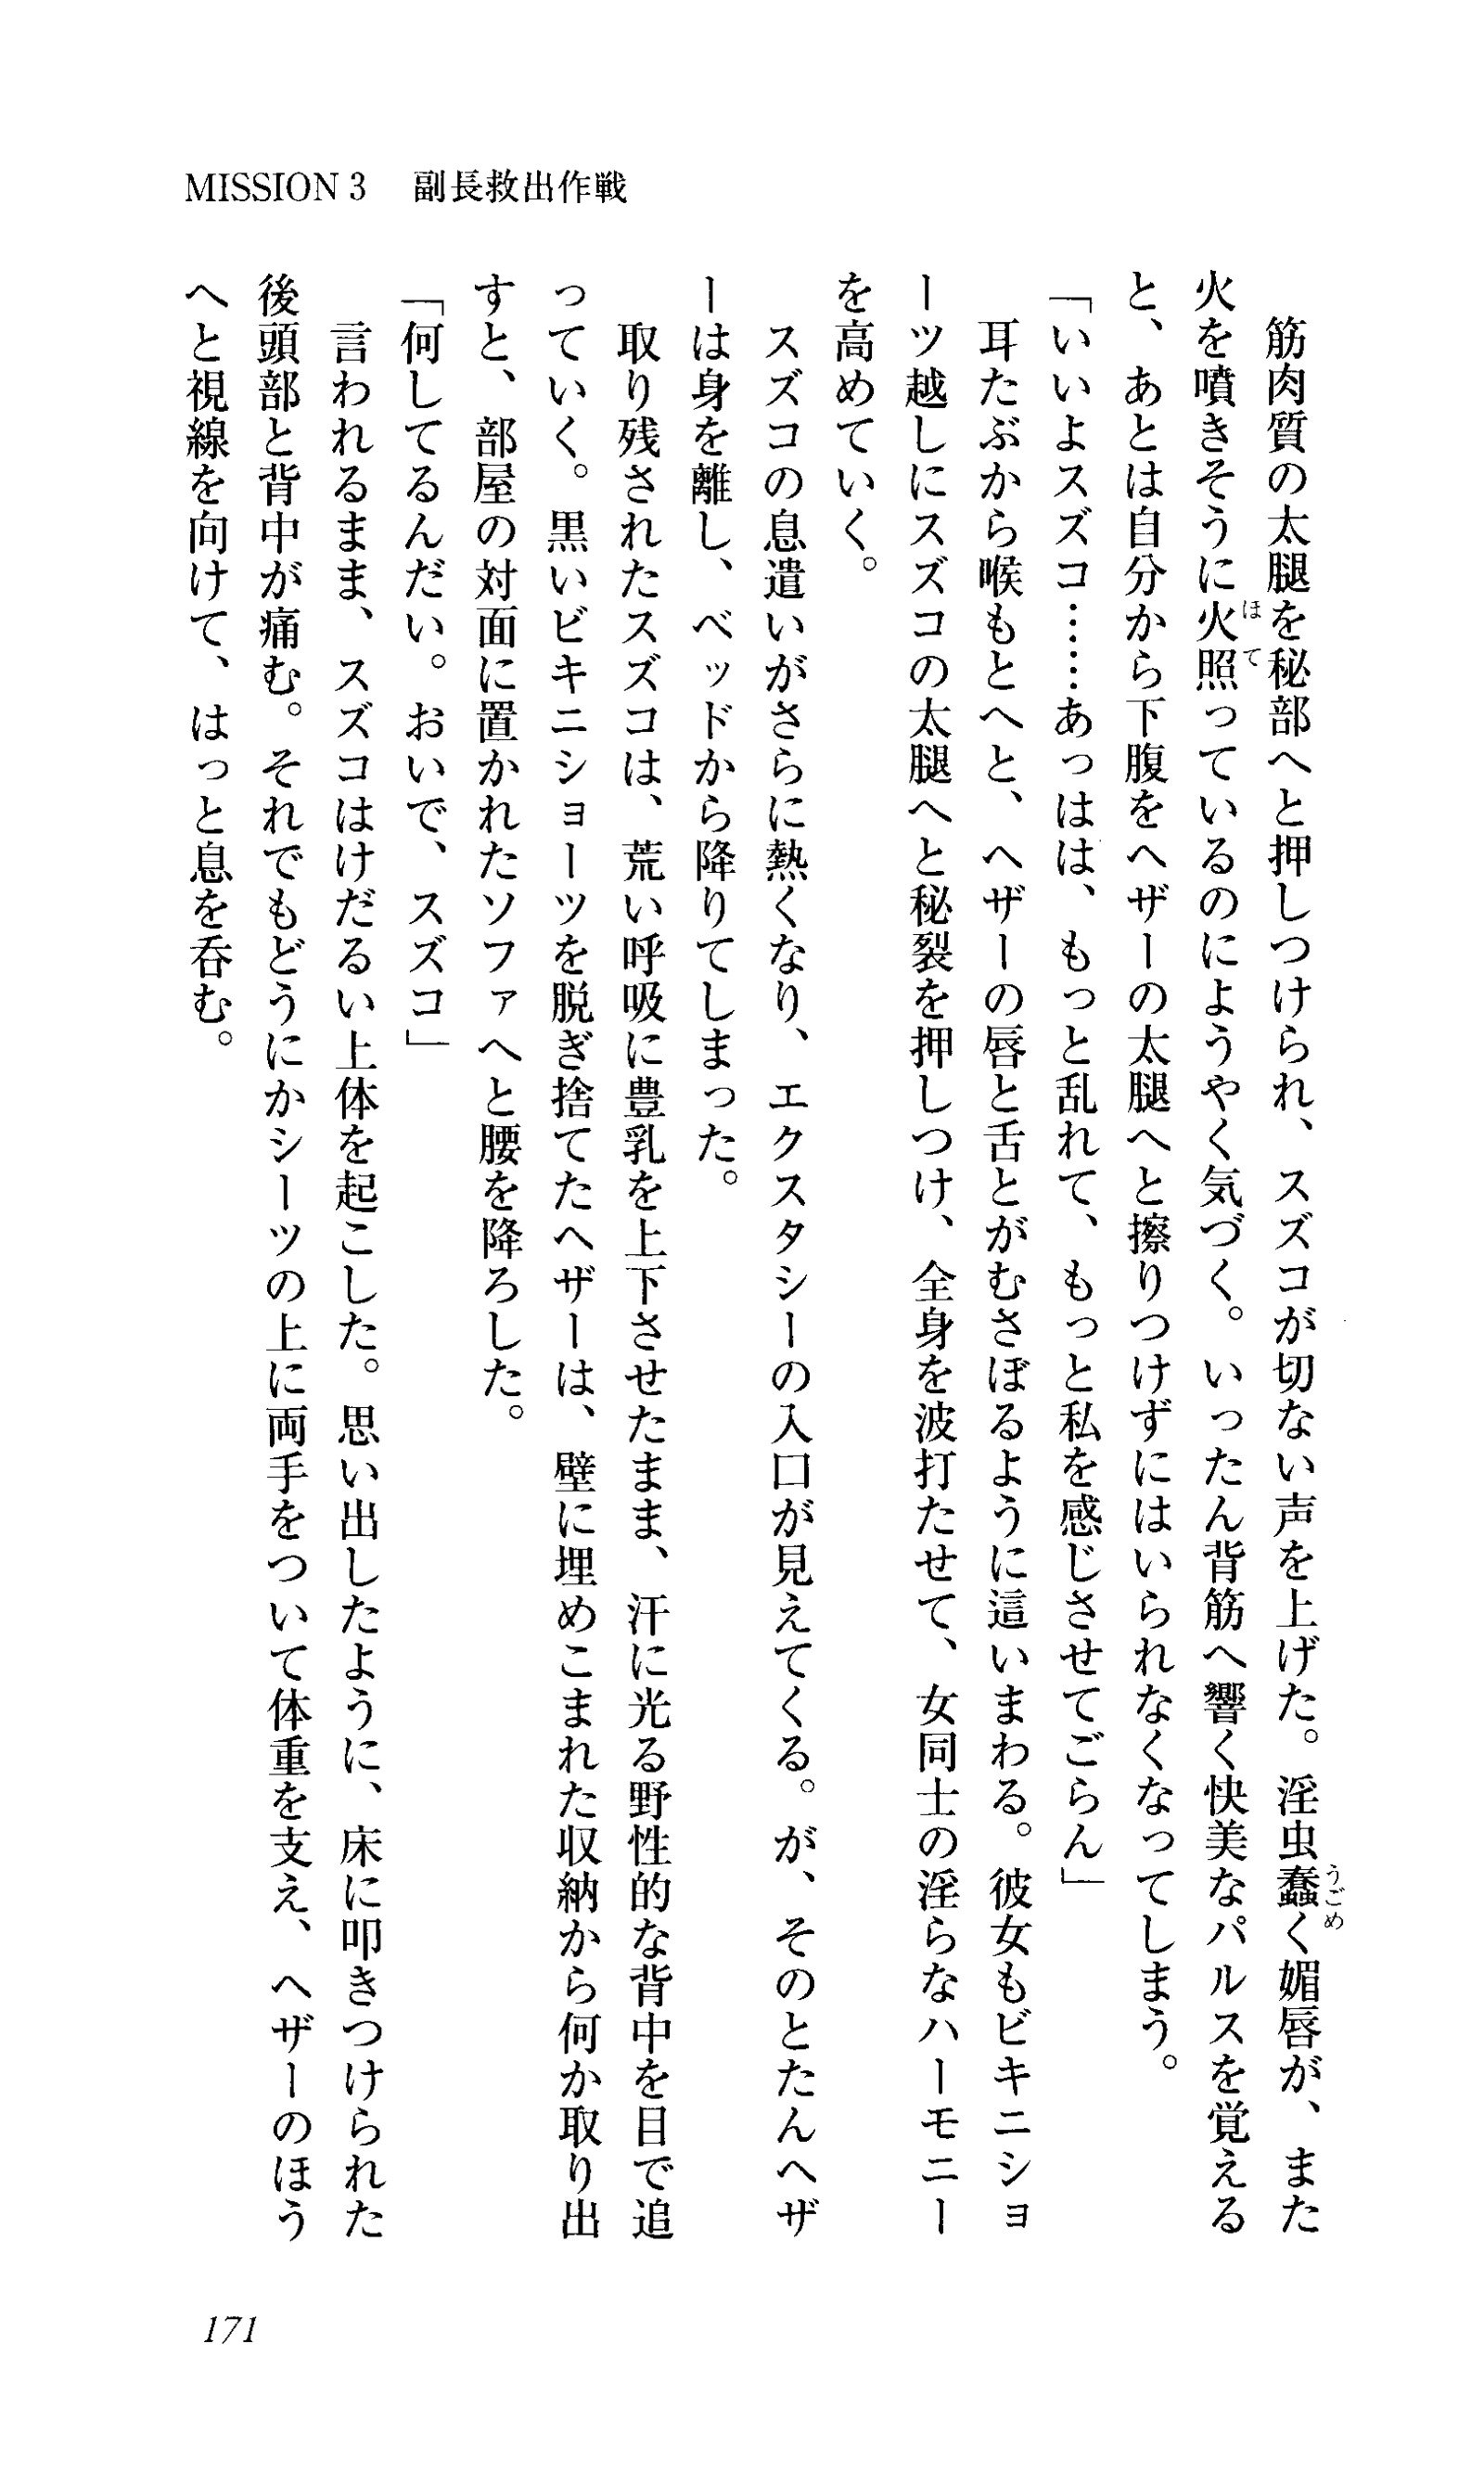 MISSION 3　副長救出作戦
　筋肉質の太腿を秘部へと押しつけられ、スズコが切ない声を上げた。淫虫蠢く媚唇が、また
火を噴きそうに火照っているのにようやく気づく。いったん背筋へ響く快美なパルスを覚える
と、あとは自分から下腹をヘザーの太腿へと擦りつけずにはいられなくなってしまう。
「いいよスズコ……あっはは、もっと乱れて、もっと私を感じさせてごらん」
　耳たぶから喉もとへと、ヘザーの唇と舌とがむさぼるように這いまわる。彼女もビキニショ
ーツ越しにスズコの太腿へと秘裂を押しつけ、全身を波打たせて、女同士の淫らなハーモニー
を高めていく。
　スズコの息遣いがさらに熱くなり、エクスタシーの入口が見えてくる。が、そのとたんヘザ
ーは身を離し、ベッドから降りてしまった。
　取り残されたスズコは、荒い呼吸に豊乳を上下させたまま、汗に光る野性的な背中を目で追
っていく。黒いビキニショーツを脱ぎ捨てたヘザーは、壁に埋めこまれた収納から何か取り出
すと、部屋の対面に置かれたソファへと腰を降ろした。
「何してるんだい。おいで、スズコ」
　言われるまま、スズコはけだるい上体を起こした。思い出したように、床に叩きつけられた
後頭部と背中が痛む。それでもどうにかシーツの上に両手をついて体重を支え、ヘザーのほう
へと視線を向けて、はっと息を呑む。
171